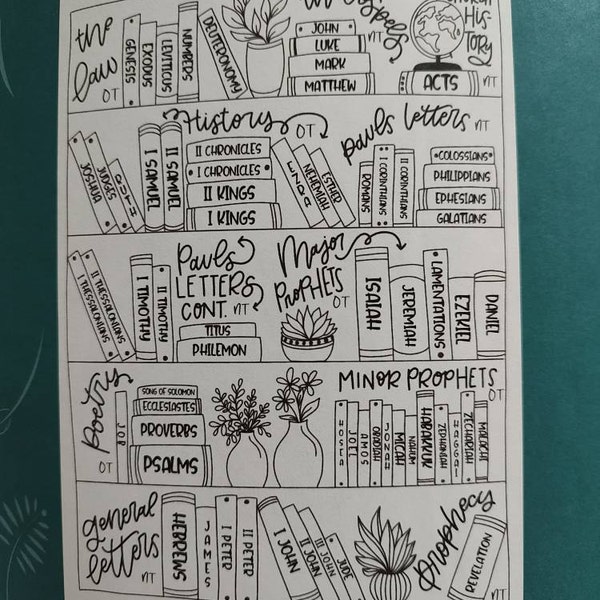 the law
OT
GENESIS
EXODUS
LEVITICUS
NUMBERS
DEUTERONOMY
Gospels
NT
JOHN
LUKE
MARK
MATTHEW
HISTORY
ACTS
NT
History
OT
JOSHUA
JUDGES
RUTH
I SAMUEL
II SAMUEL
II CHRONICLES
I CHRONICLES
II KINGS
I KINGS
EZRA
NEHEMIAH
ESTHER
pauls letters NT
ROMANS
I CORINTHIANS
II CORINTHIANS
COLOSSIANS
PHILIPPIANS
EPHESIANS
GALATIANS
I THESSALONIANS
II THESSALONIANS
I TIMOTHY
II TIMOTHY
Pauls
LETTERS
CONT. NT
TITUS
PHILEMON
Major
PROPHETS
OT
ISAIAH
JEREMIAH
LAMENTATIONS
EZEKIEL
DANIEL
Poetry
OT
JOB
SONG OF SOLOMON
ECCLESIASTES
PROVERBS
PSALMS
MINOR PROPHETS
OT
HOSEA
JOEL
AMOS
OBADIAH
JONAH
MICAH
NAHUM
HABAKKUK
ZEPHANIAH
HAGGAI
ZECHARIAH
MALACHI
general
letters
NT
HEBREWS
JAMES
I PETER
II PETER
I JOHN
II JOHN
III JOHN
JUDE
prophecy
REVELATION
NT